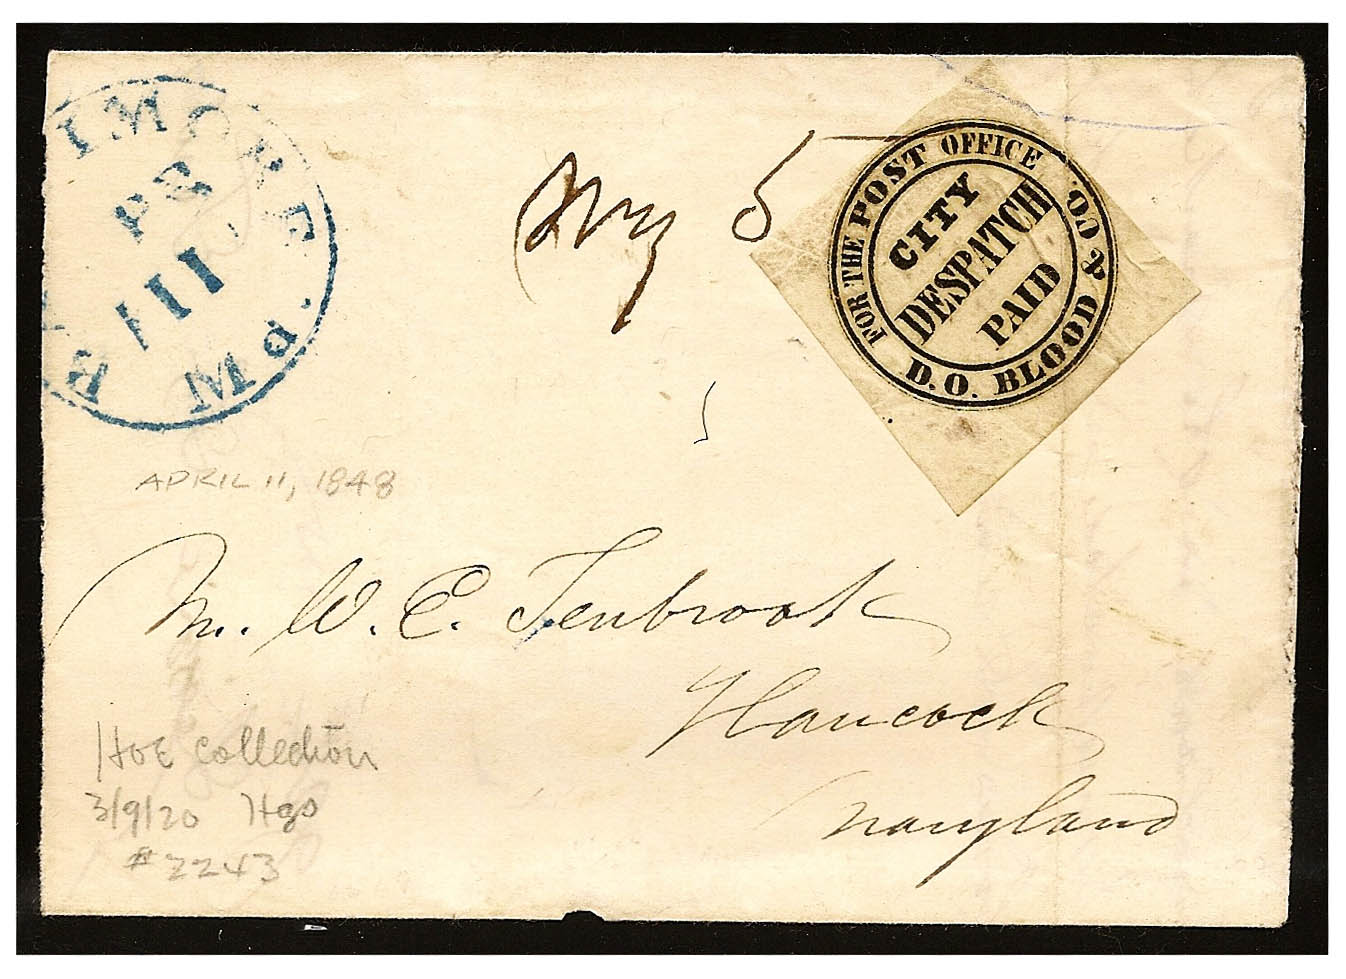 B IMORE Md.
AP
11
Way 5
FOR THE POST OFFICE
CITY
DESPATCH
PAID
D.O. BLOOD & CO.
APRIL 11, 1848
Mr. W. E. Tenbrook
Hancock
Maryland
HOE Collection
3/9/20 Hgs
#2243